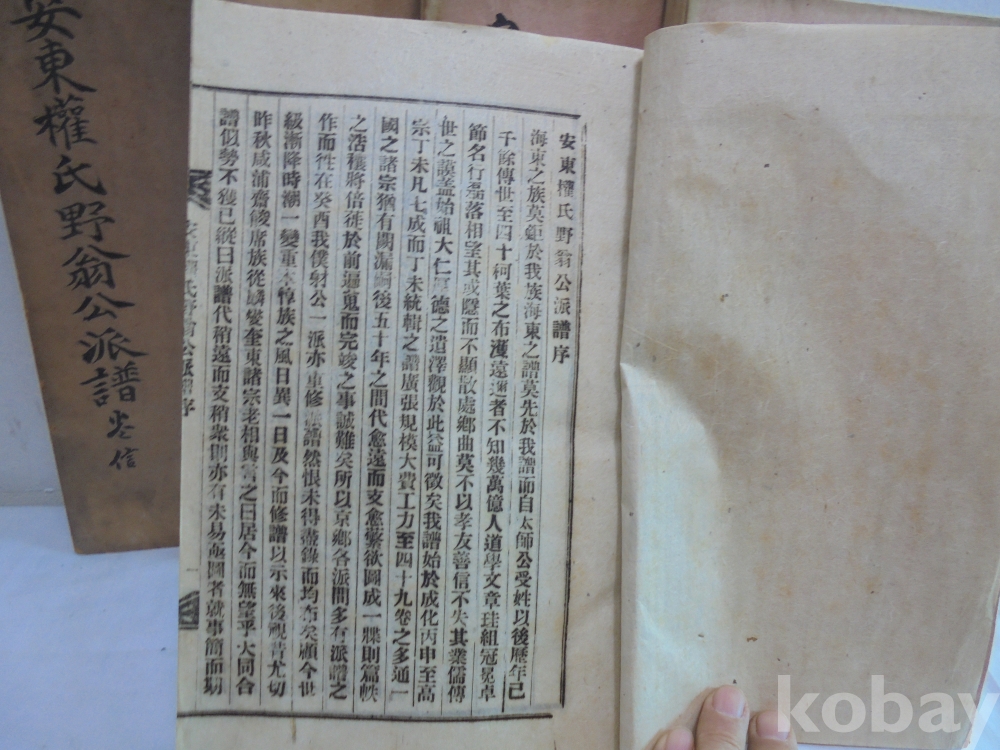 安東權氏野翁公派譜
卷信
安東權氏野翁公派譜序
海東之族莫鉅於我族海東之譜莫先於我譜而自太師公受姓以後歷年已
千餘傳世至四十柯葉之布濩遠邇者不知幾萬億人道學文章珪組冠冕卓
節名行磊落相望其或隱而不顯散處鄕曲莫不以孝友善信不失其業儒傳
世之謨蓋始祖大仁厚德之遺澤觀於此益可徵矣我譜始於成化丙申至高
宗丁未凡七成而丁未統輯之譜廣張規模大費工力至四十九卷之多通一
國之諸宗猶有闕漏嗣後五十年之間代愈遠而支愈蕃欲圖成一牒則篇帙
之浩穰將倍蓰於前遍蒐而完竣之事誠難矣所以京鄕各派間多有派譜之
作而徃在癸酉我僕射公一派亦重修譜然恨未得盡錄而均布矣顧今世
級漸降時潮一變重本惇族之風日異一日及今而修譜以示來後視昔尤切
昨秋咸浦齋後席族從麟燮奎東諸宗老相與言之曰居今而無望乎大同合
譜似勢不獲已縱曰派譜代稍遠而支稍衆則亦有未易亟圖者就事簡而剔
安東權氏野翁公派譜序
一
kobay